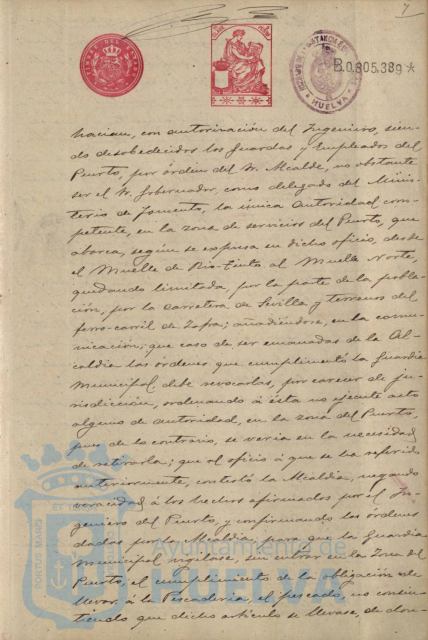 7
B.0.805.389 *
HUELVA
hacian, con autorización del Ingeniero, sien-
do desobedecidos los Guardas y Empleados del
Puerto, por órden del Sr. Alcalde, no obstante
ser el Sr. Gobernador, como delegado del Minis-
terio de Fomento, la única Autoridad com-
petente, en la zona de servicios del Puerto, que
abarca, según se expresa en dicho oficio, desde
el Muelle de Rio-Tinto al Muelle Norte,
quedando limitada, por la parte de la pobla-
ción, por la carretera de Sevilla y terrenos del
ferro-carril de Zafra; añadiéndose, en la comu-
nicación, que caso de ser emanadas de la Al-
caldia las órdenes que cumplimentó la Guardia
Municipal debe revocarlas, por carecer de ju-
risdicción, ordenando á ésta no ejecute acto
alguno de autoridad, en la zona del Puerto,
pues de lo contrario, se veria en la necesidad
de retirarla; que al oficio á que se ha referido
anteriormente, contestó la Alcaldia, negando
veracidad á los hechos afirmados por el Inge-
niero del Puerto, y confirmando las órdenes
dadas por la Alcaldia, para que la Guardia
Municipal vigilase, sin entrar en la Zona del
Puerto, el cumplimiento de la obligación de
llevar á la Pescaderia, el pescado, no consin-
tiendo que dicho artículo se llevase, de don-
Ayuntamiento de
HUELVA
PORTUS MARIS